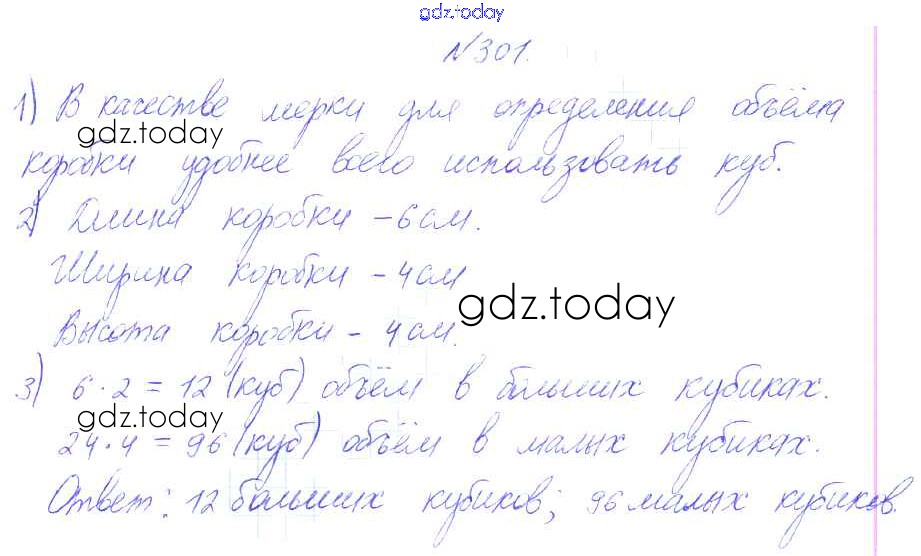 gdz.today
№301.
1) В качестве мерки для определения объёма
gdz.today
коробки удобнее всего использовать куб.
2) Длина коробки - 6 см.
Ширина коробки - 4 см
gdz.today
Высота коробки - 4 см.
3) 6 · 2 = 12 (куб) объём в больших кубиках.
gdz.today
24 · 4 = 96 (куб) объём в малых кубиках.
Ответ: 12 больших кубиков; 96 малых кубиков.